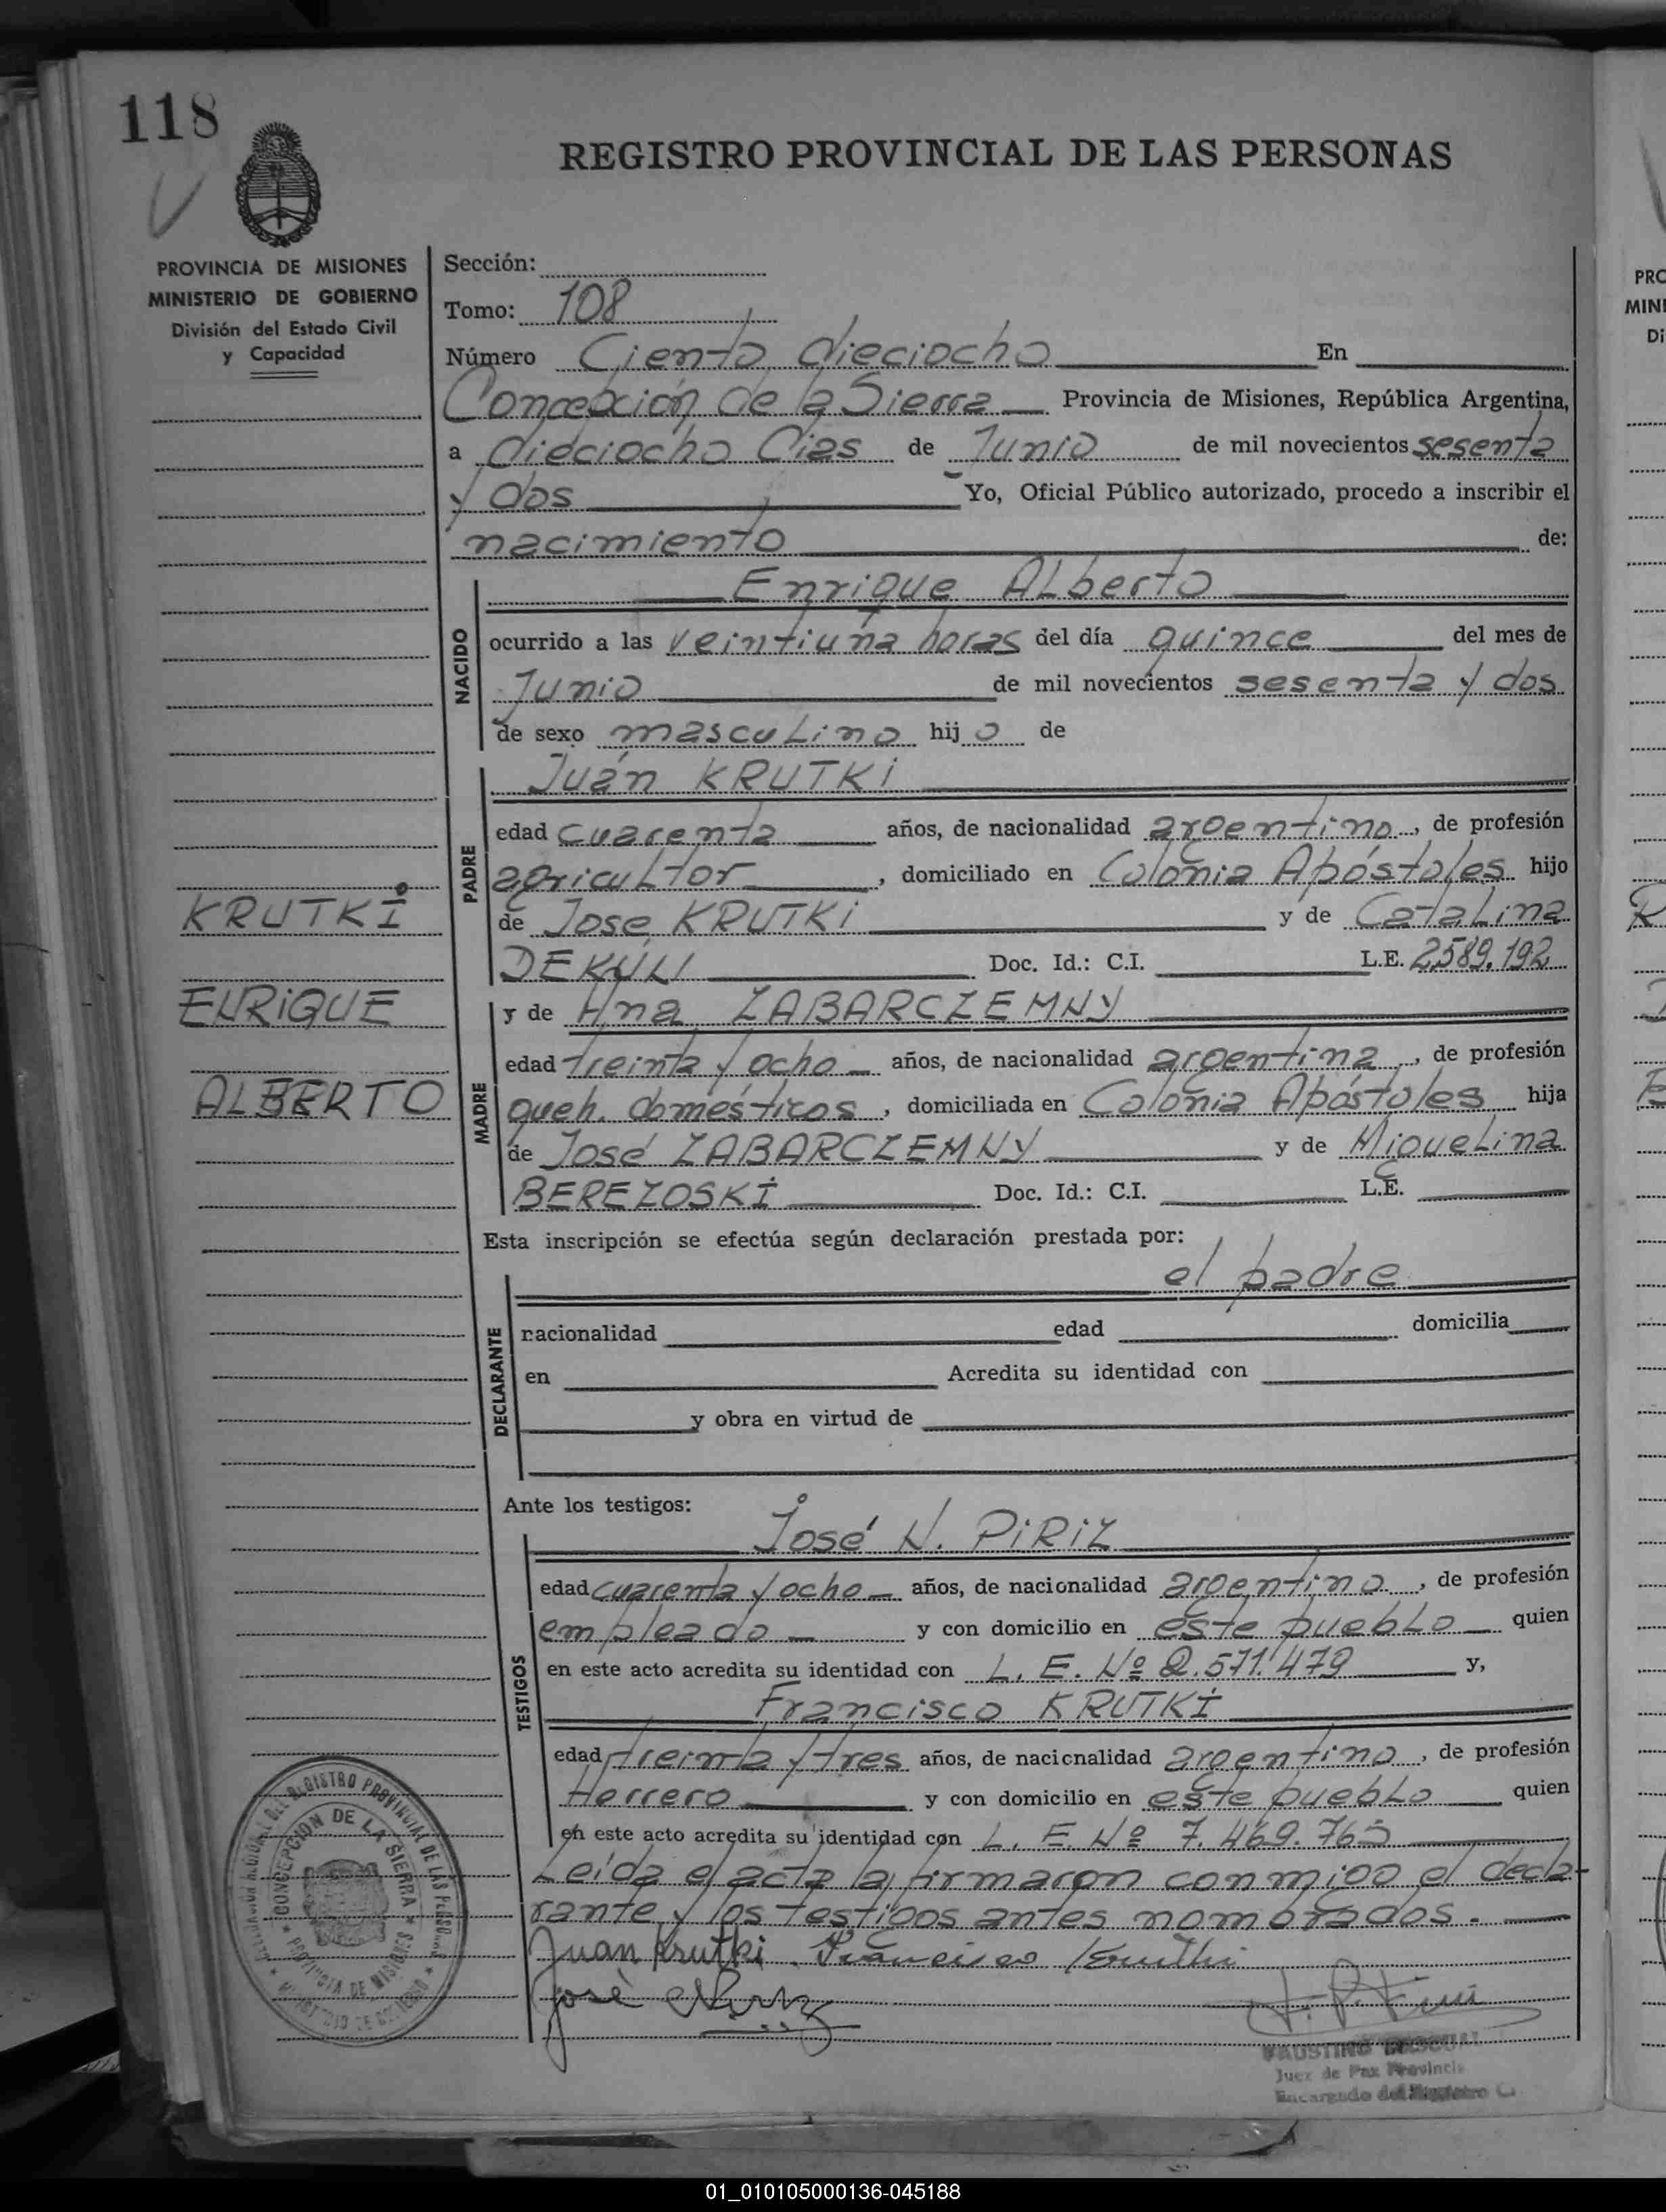 118
REGISTRO PROVINCIAL DE LAS PERSONAS
PROVINCIA DE MISIONES
MINISTERIO DE GOBIERNO
División del Estado Civil
y Capacidad
KRUTKi
ENRiQUE
ALBERTO
Sección:
Tomo: 108
Número Ciento dieciocho En
Concepción de la Sierra Provincia de Misiones, República Argentina,
a dieciocho Dias de Junio de mil novecientos sesenta
y dos Yo, Oficial Público autorizado, procedo a inscribir el
nacimiento de:
NACIDO
Enrique ALberto
ocurrido a las veintiuna horas del día quince del mes de
Junio de mil novecientos sesenta y dos
de sexo mascuLino hijo de
PADRE
Juán KRUTKi
edad cuarenta años, de nacionalidad argentino, de profesión
agricuLtor, domiciliado en Colonia Apóstoles hijo
de Jose KRUTKi y de CataLina
DEKULI Doc. Id.: C.I. L.E. 2589.192
MADRE
y de Ana ZABARCZEMNY
edad treinta y ocho años, de nacionalidad argentina, de profesión
queh. domésticos, domiciliada en Colonia Apóstoles hija
de José ZABARCZEMNY y de MigueLina
BEREZOSKi Doc. Id.: C.I. L.E.
Esta inscripción se efectúa según declaración prestada por:
el padre
DECLARANTE
nacionalidad edad domicilia
en Acredita su identidad con
y obra en virtud de
Ante los testigos:
TESTIGOS
José N. PiRiZ
edad cuarenta y ocho años, de nacionalidad argentino, de profesión
empleado y con domicilio en este puebLo quien
en este acto acredita su identidad con L. E. Nº 2.571.479 y,
Francisco KRUTKi
edad treinta y tres años, de nacicnalidad argentino, de profesión
Herrero y con domicilio en este puebLo quien
en este acto acredita su identidad con L. E. Nº 7.469.765
Leída el acta la firmaron conmigo el decla-
rante y los testigos antes nombrados.
Juan Krutki Francisco Krutki
José N Piriz
CONCEPCION DE LA SIERRA
PROVINCIA DE MISIONES
FAUSTINO
Juez de Paz Provincial
Encargado del Registro C
PRO
MINI
Di
01_010105000136-045188